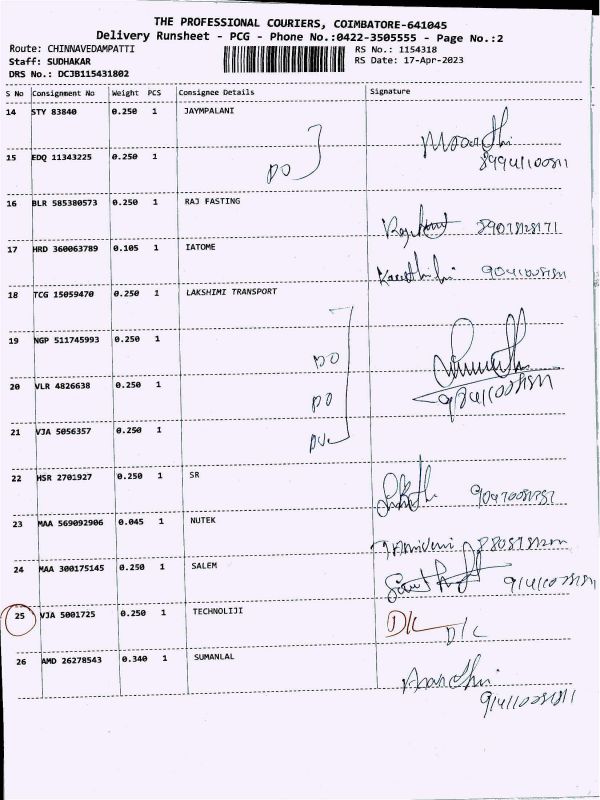 THE PROFESSIONAL COURIERS, COIMBATORE-641045
Delivery Runsheet - PCG - Phone No.:0422-3505555 - Page No.:2
Route: CHINNAVEDAMPATTI RS No.: 1154318
Staff: SUDHAKAR RS Date: 17-Apr-2023
DRS No.: DCJB115431802
S No Consignment No Weight PCS Consignee Details Signature
14 STY 83840 0.250 1 JAYMPALANI
15 EDQ 11343225 0.250 1
DO
16 BLR 585380573 0.250 1 RAJ FASTING
17 HRD 360063789 0.105 1 IATOME
18 TCG 15059470 0.250 1 LAKSHIMI TRANSPORT
19 NGP 511745993 0.250 1
DO
20 VLR 4826638 0.250 1
DO
21 VJA 5056357 0.250 1
22 HSR 2701927 0.250 1 SR
23 MAA 569092906 0.045 1 NUTEK
24 MAA 300175145 0.250 1 SALEM
25 VJA 5001725 0.250 1 TECHNOLIJI D/L D/L
26 AMD 26278543 0.340 1 SUMANLAL